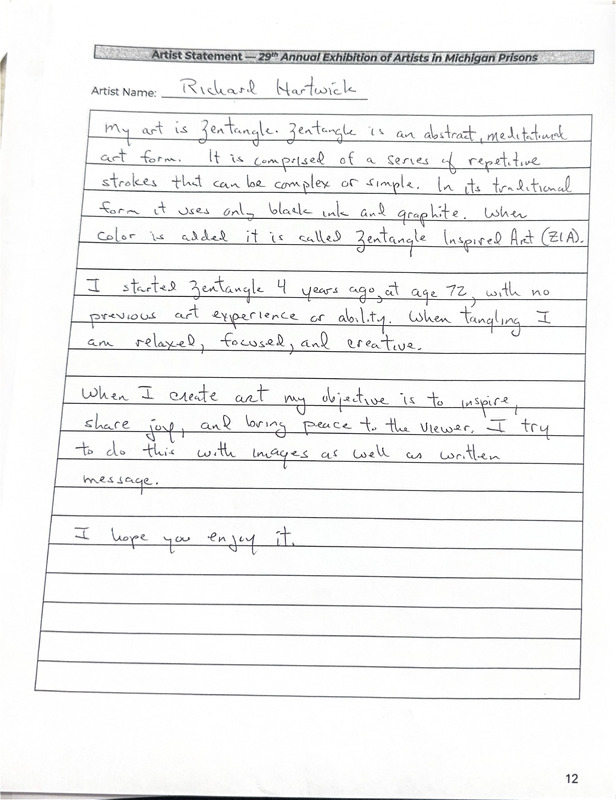 Artist Statement — 29th Annual Exhibition of Artists in Michigan Prisons
Artist Name: Richard Hartwick
My art is Zentangle. Zentangle is an abstract, meditational
art form. It is comprised of a series of repetitive
strokes that can be complex or simple. In its traditional
form it uses only black ink and graphite. When
color is added it is called Zentangle Inspired Art (ZIA).
I started Zentangle 4 years ago, at age 72, with no
previous art experience or ability. When tangling I
am relaxed, focused, and creative.
When I create art my objective is to inspire,
share joy, and bring peace to the viewer. I try
to do this with images as well as written
message.
I hope you enjoy it.
12